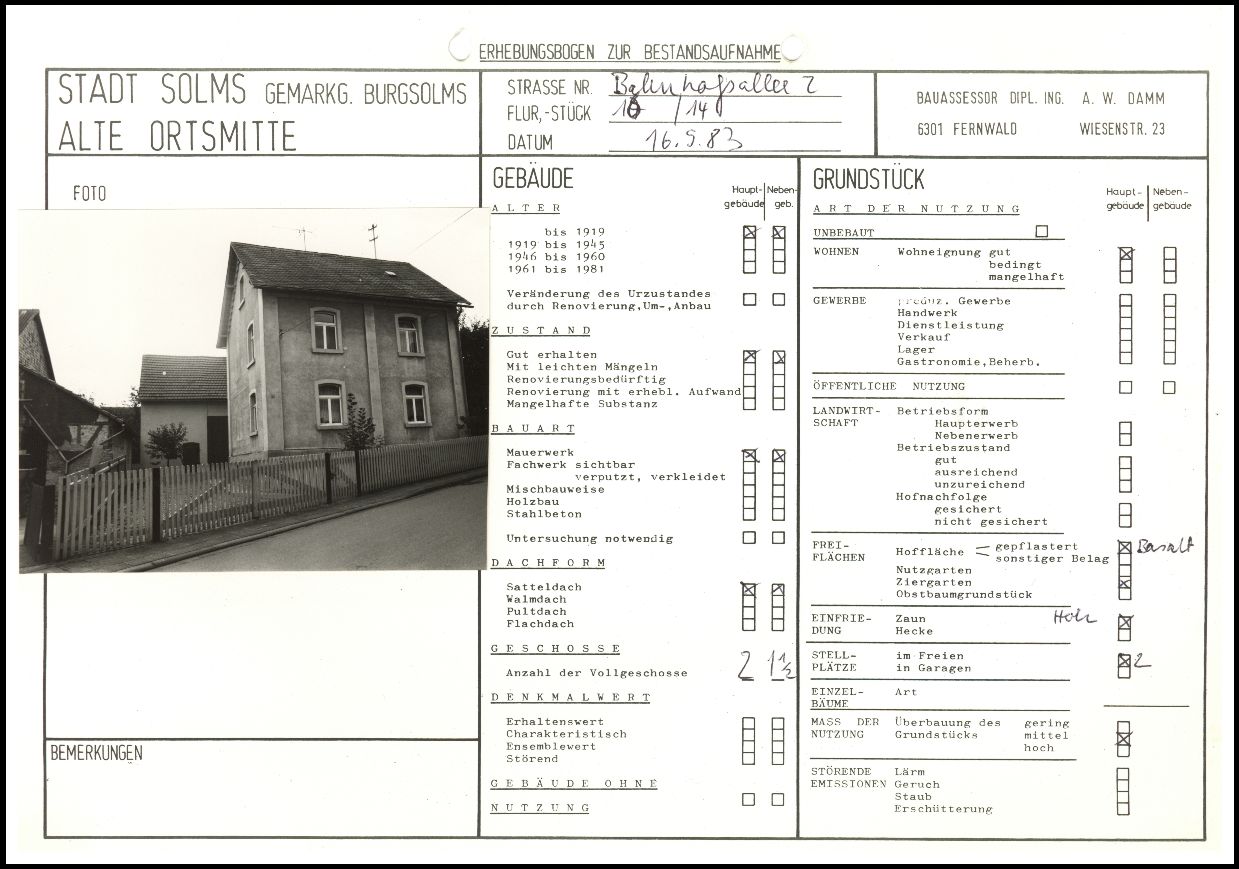 ERHEBUNGSBOGEN ZUR BESTANDSAUFNAHME
STADT SOLMS GEMARKG. BURGSOLMS
ALTE ORTSMITTE
STRASSE NR. Bahnhofsallee 2
FLUR,-STÜCK /14
DATUM 16.9.83
BAUASSESSOR DIPL. ING. A. W. DAMM
6301 FERNWALD WIESENSTR. 23
FOTO
BEMERKUNGEN
GEBÄUDE
Haupt- Neben-
gebäude geb.
ALTER
bis 1919
1919 bis 1945
1946 bis 1960
1961 bis 1981
Veränderung des Urzustandes
durch Renovierung,Um-,Anbau
ZUSTAND
Gut erhalten
Mit leichten Mängeln
Renovierungsbedürftig
Renovierung mit erhebl. Aufwand
Mangelhafte Substanz
BAUART
Mauerwerk
Fachwerk sichtbar
verputzt, verkleidet
Mischbauweise
Holzbau
Stahlbeton
Untersuchung notwendig
DACHFORM
Satteldach
Walmdach
Pultdach
Flachdach
GESCHOSSE
Anzahl der Vollgeschosse 2 1½
DENKMALWERT
Erhaltenswert
Charakteristisch
Ensemblewert
Störend
GEBÄUDE OHNE
NUTZUNG
GRUNDSTÜCK
Haupt- Neben-
gebäude gebäude
ART DER NUTZUNG
UNBEBAUT
WOHNEN Wohneignung gut
bedingt
mangelhaft
GEWERBE produz. Gewerbe
Handwerk
Dienstleistung
Verkauf
Lager
Gastronomie,Beherb.
ÖFFENTLICHE NUTZUNG
LANDWIRT- Betriebsform
SCHAFT Haupterwerb
Nebenerwerb
Betriebszustand
gut
ausreichend
unzureichend
Hofnachfolge
gesichert
nicht gesichert
FREI- Hoffläche gepflastert Basalt
FLÄCHEN sonstiger Belag
Nutzgarten
Ziergarten
Obstbaumgrundstück
EINFRIE- Zaun Holz
DUNG Hecke
STELL- im Freien 2
PLÄTZE in Garagen
EINZEL- Art
BÄUME
MASS DER Überbauung des gering
NUTZUNG Grundstücks mittel
hoch
STÖRENDE Lärm
EMISSIONEN Geruch
Staub
Erschütterung